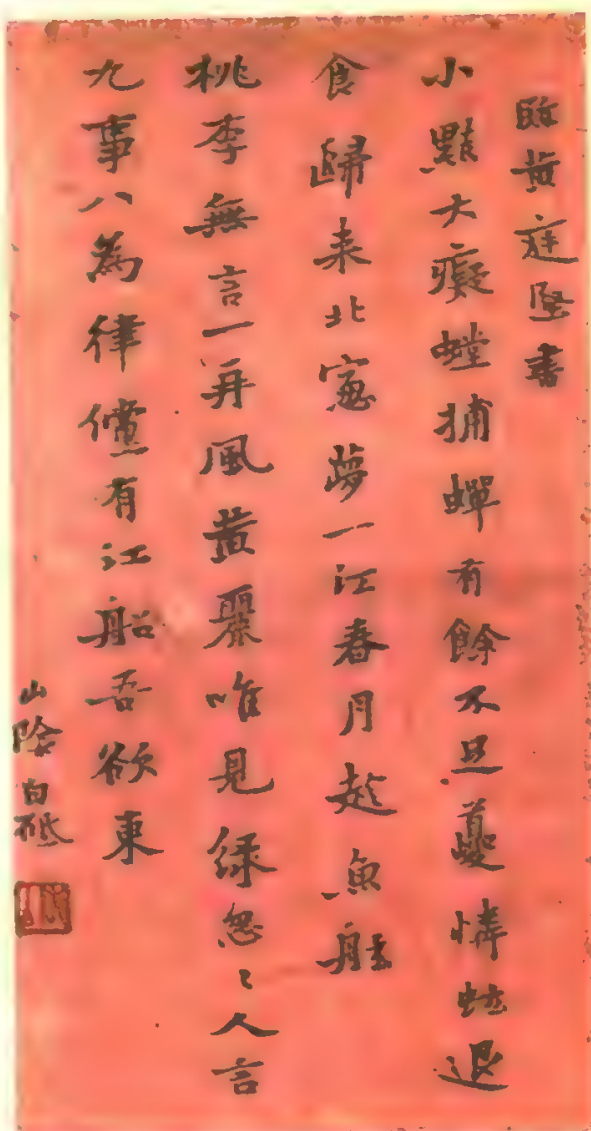 臨黄庭坚書
小黠大癡螳捕蟬有餘不足夔憐蚿退
食歸来北窓夢一江春月趂魚船
桃李無言一再風黄麗唯見緑怱〻人言
九事八為律儻有江船吾欲東
山陰白砥